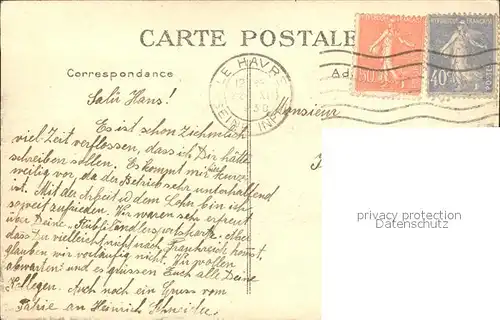 CARTE POSTALE
REPUBLIQUE FRANÇAISE
50c
40c
POSTES
LE HAVRE
SEINE INF
Correspondance
Monsieur
Salü Hans!
Es ist schon Ziehmlich
viel Zeit verflossen, dass ich Dir hätte
schreiben sollen. Es kommt mir gar
weilig vor, da der Betrieb sehr unterhaltend
ist. Mit der Arbeit u dem Lohn bin ich
soweit zufrieden. Wir waren sehr erfreut
über Deine
dass Du vielleicht nicht nach Frankreich kommst,
glauben wir vorläufig nicht. Wir wollen
abwarten! und es grüssen Euch alle Deine
Kollegen. Auch noch ein Gruss vom
an Heinrich Schneider.
privacy protection
Datenschutz